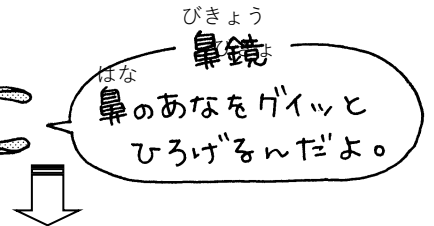 びきょう
鼻鏡
はな
鼻のあなをグイッと
ひろげるんだよ。